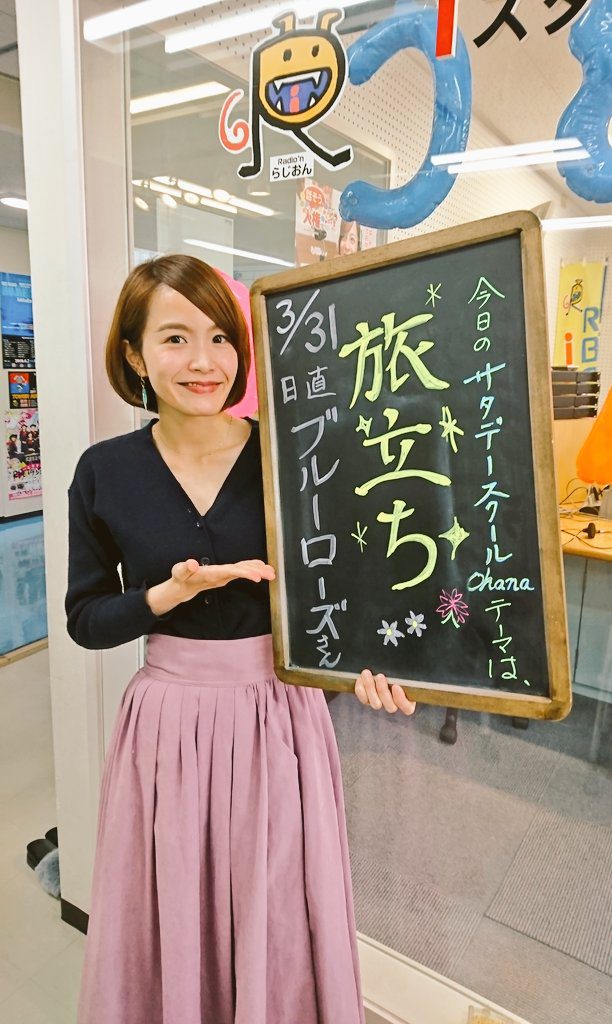 今日のサタデースクールOhanaテーマは、
旅立ち
3/31
日直 ブルーローズさん
Radio'n
らじおん
iスタ
RBC
i